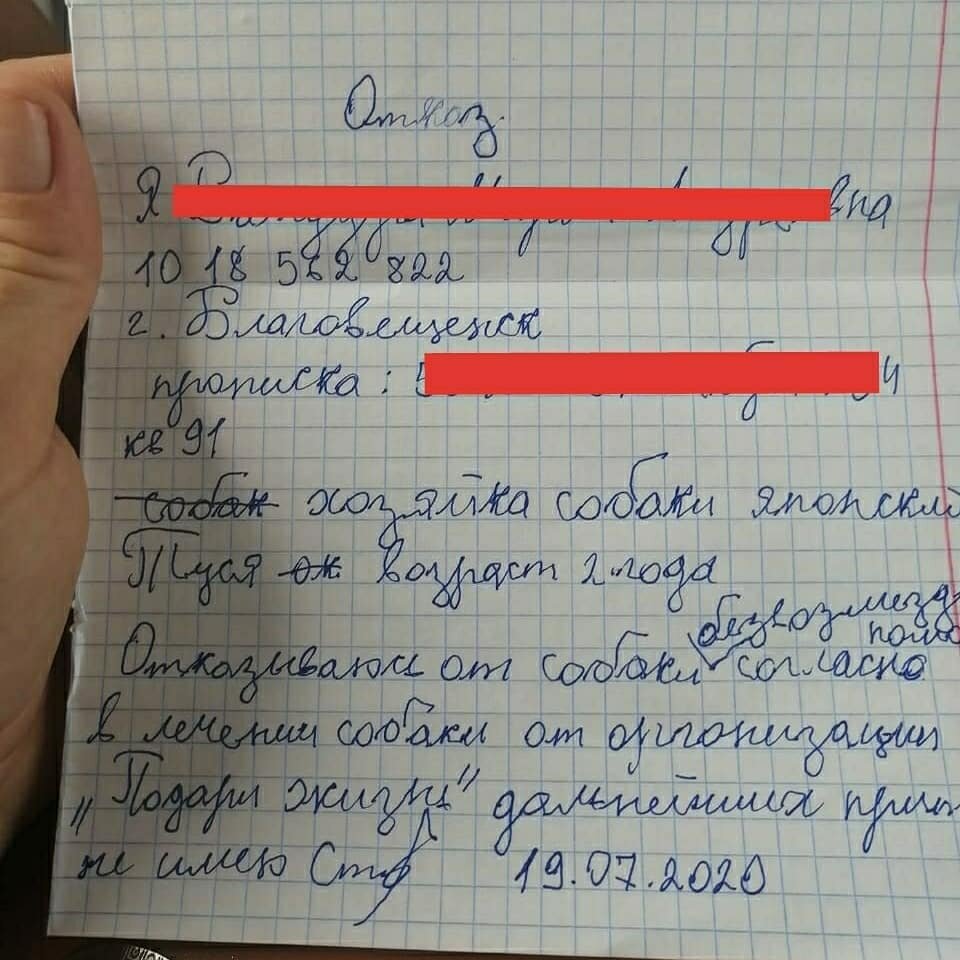 Отказ.
Я вна
10 18 562 822
г. Благовещенск
прописка: 4
кв 91
собак хозяйка собаки японский
Туся ок возраст 2 года
безвозмезд
помо
Отказываюсь от собаки согласно
в лечении собаки от организации
"Подари жизнь" дальнейших прит
не имею 19.07.2020